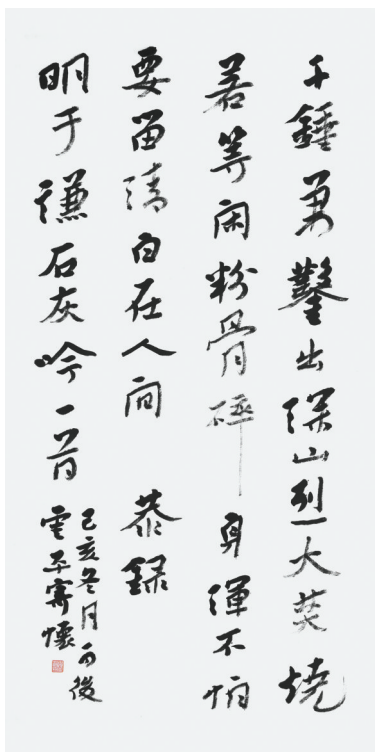 千錘萬鑿出深山烈火焚燒
若等闲粉骨碎身渾不怕
要留清白在人间 恭録
明于謙石灰吟一首
己亥冬月雨後
雲平寄懷